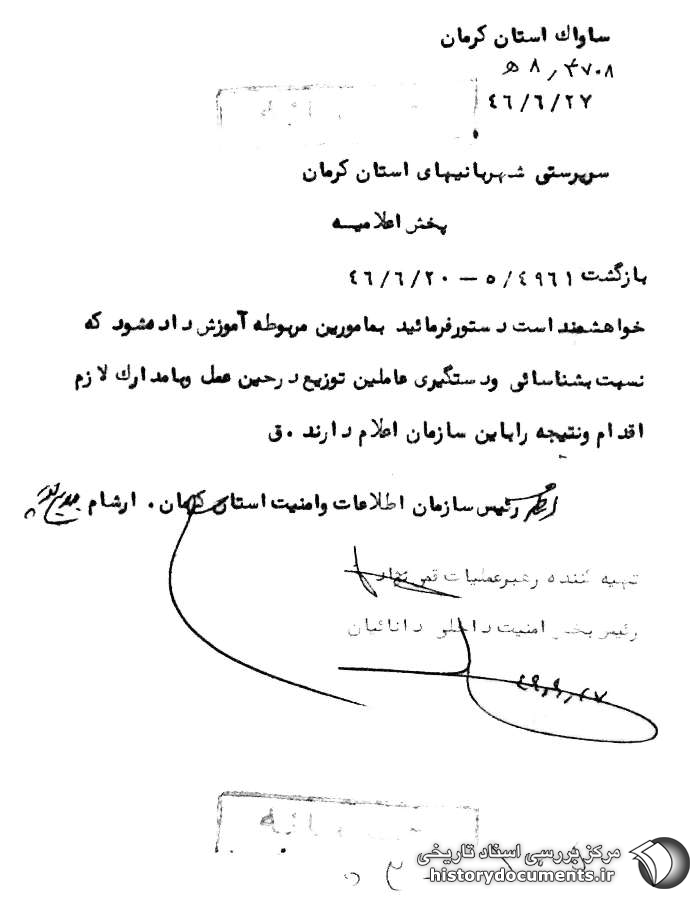 ساواك استان کرمان
۸٫۴۷۰۸ ه
٤٦/٦/۲۷
سرپرستی شهربانیهای استان کرمان
پخش اعلامیه
بازگشت ۵/٤۹٦۱ – ٤٦/٦/۲۰
خواهشمند است دستورفرمائید بمامورین مربوطه آموزش داده شود که
نسبت بشناسائی ودستگیری عاملین توزیع درحین عمل وبامدارك لازم
اقدام ونتیجه راباین سازمان اعلام دارند .ق
رئیس سازمان اطلاعات وامنیت استان کرمان. ارشام
تهیه کننده رهبرعملیات
رئیس بخش امنیت داخلی دانائیان
محرمانه
مرکز بررسی اسناد تاریخی
historydocuments.ir